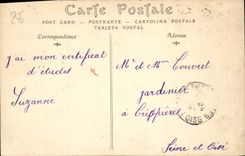 Carte Postale
POST CARD - POSTKARTE - CARTOLINA POSTALE
TARJETA POSTAL
Correspondance
Adresse
J'ai mon certificat
d'études
Suzanne
Mr et Mme Couvret
jardinier
à Griffières
Seine et Oise